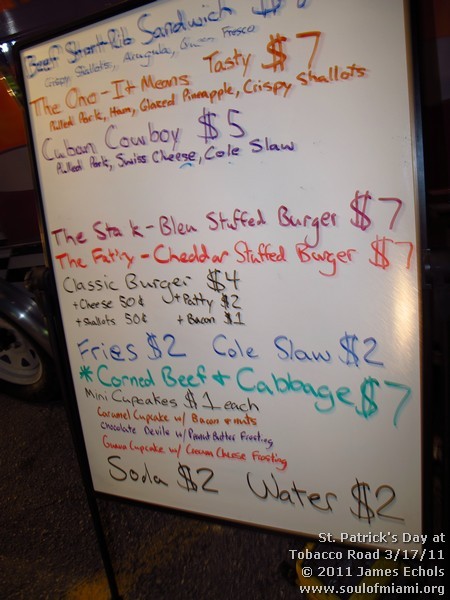 Beef Short Rib Sandwich $
Crispy Shallots, Arugula, Queso Fresco
The Ono-It Means Tasty $7
Pulled Pork, Ham, Glazed Pineapple, Crispy Shallots
Cuban Cowboy $5
Pulled Pork, Swiss Cheese, Cole Slaw
The Sta k-Bleu Stuffed Burger $7
The Fat'ry-Cheddar Stuffed Burger $7
Classic Burger $4
+Cheese 50¢ +Patty $2
+Shallots 50¢ +Bacon $1
Fries $2 Cole Slaw $2
*Corned Beef + Cabbage $7
Mini Cupcakes $1 each
Caramel Cupcake w/ Bacon + nuts
Chocolate Devils w/ Peanut Butter Frosting
Guava Cupcake w/ Cream Cheese Frosting
Soda $2 Water $2
St. Patrick's Day at
Tobacco Road 3/17/11
© 2011 James Echols
www.soulofmiami.org